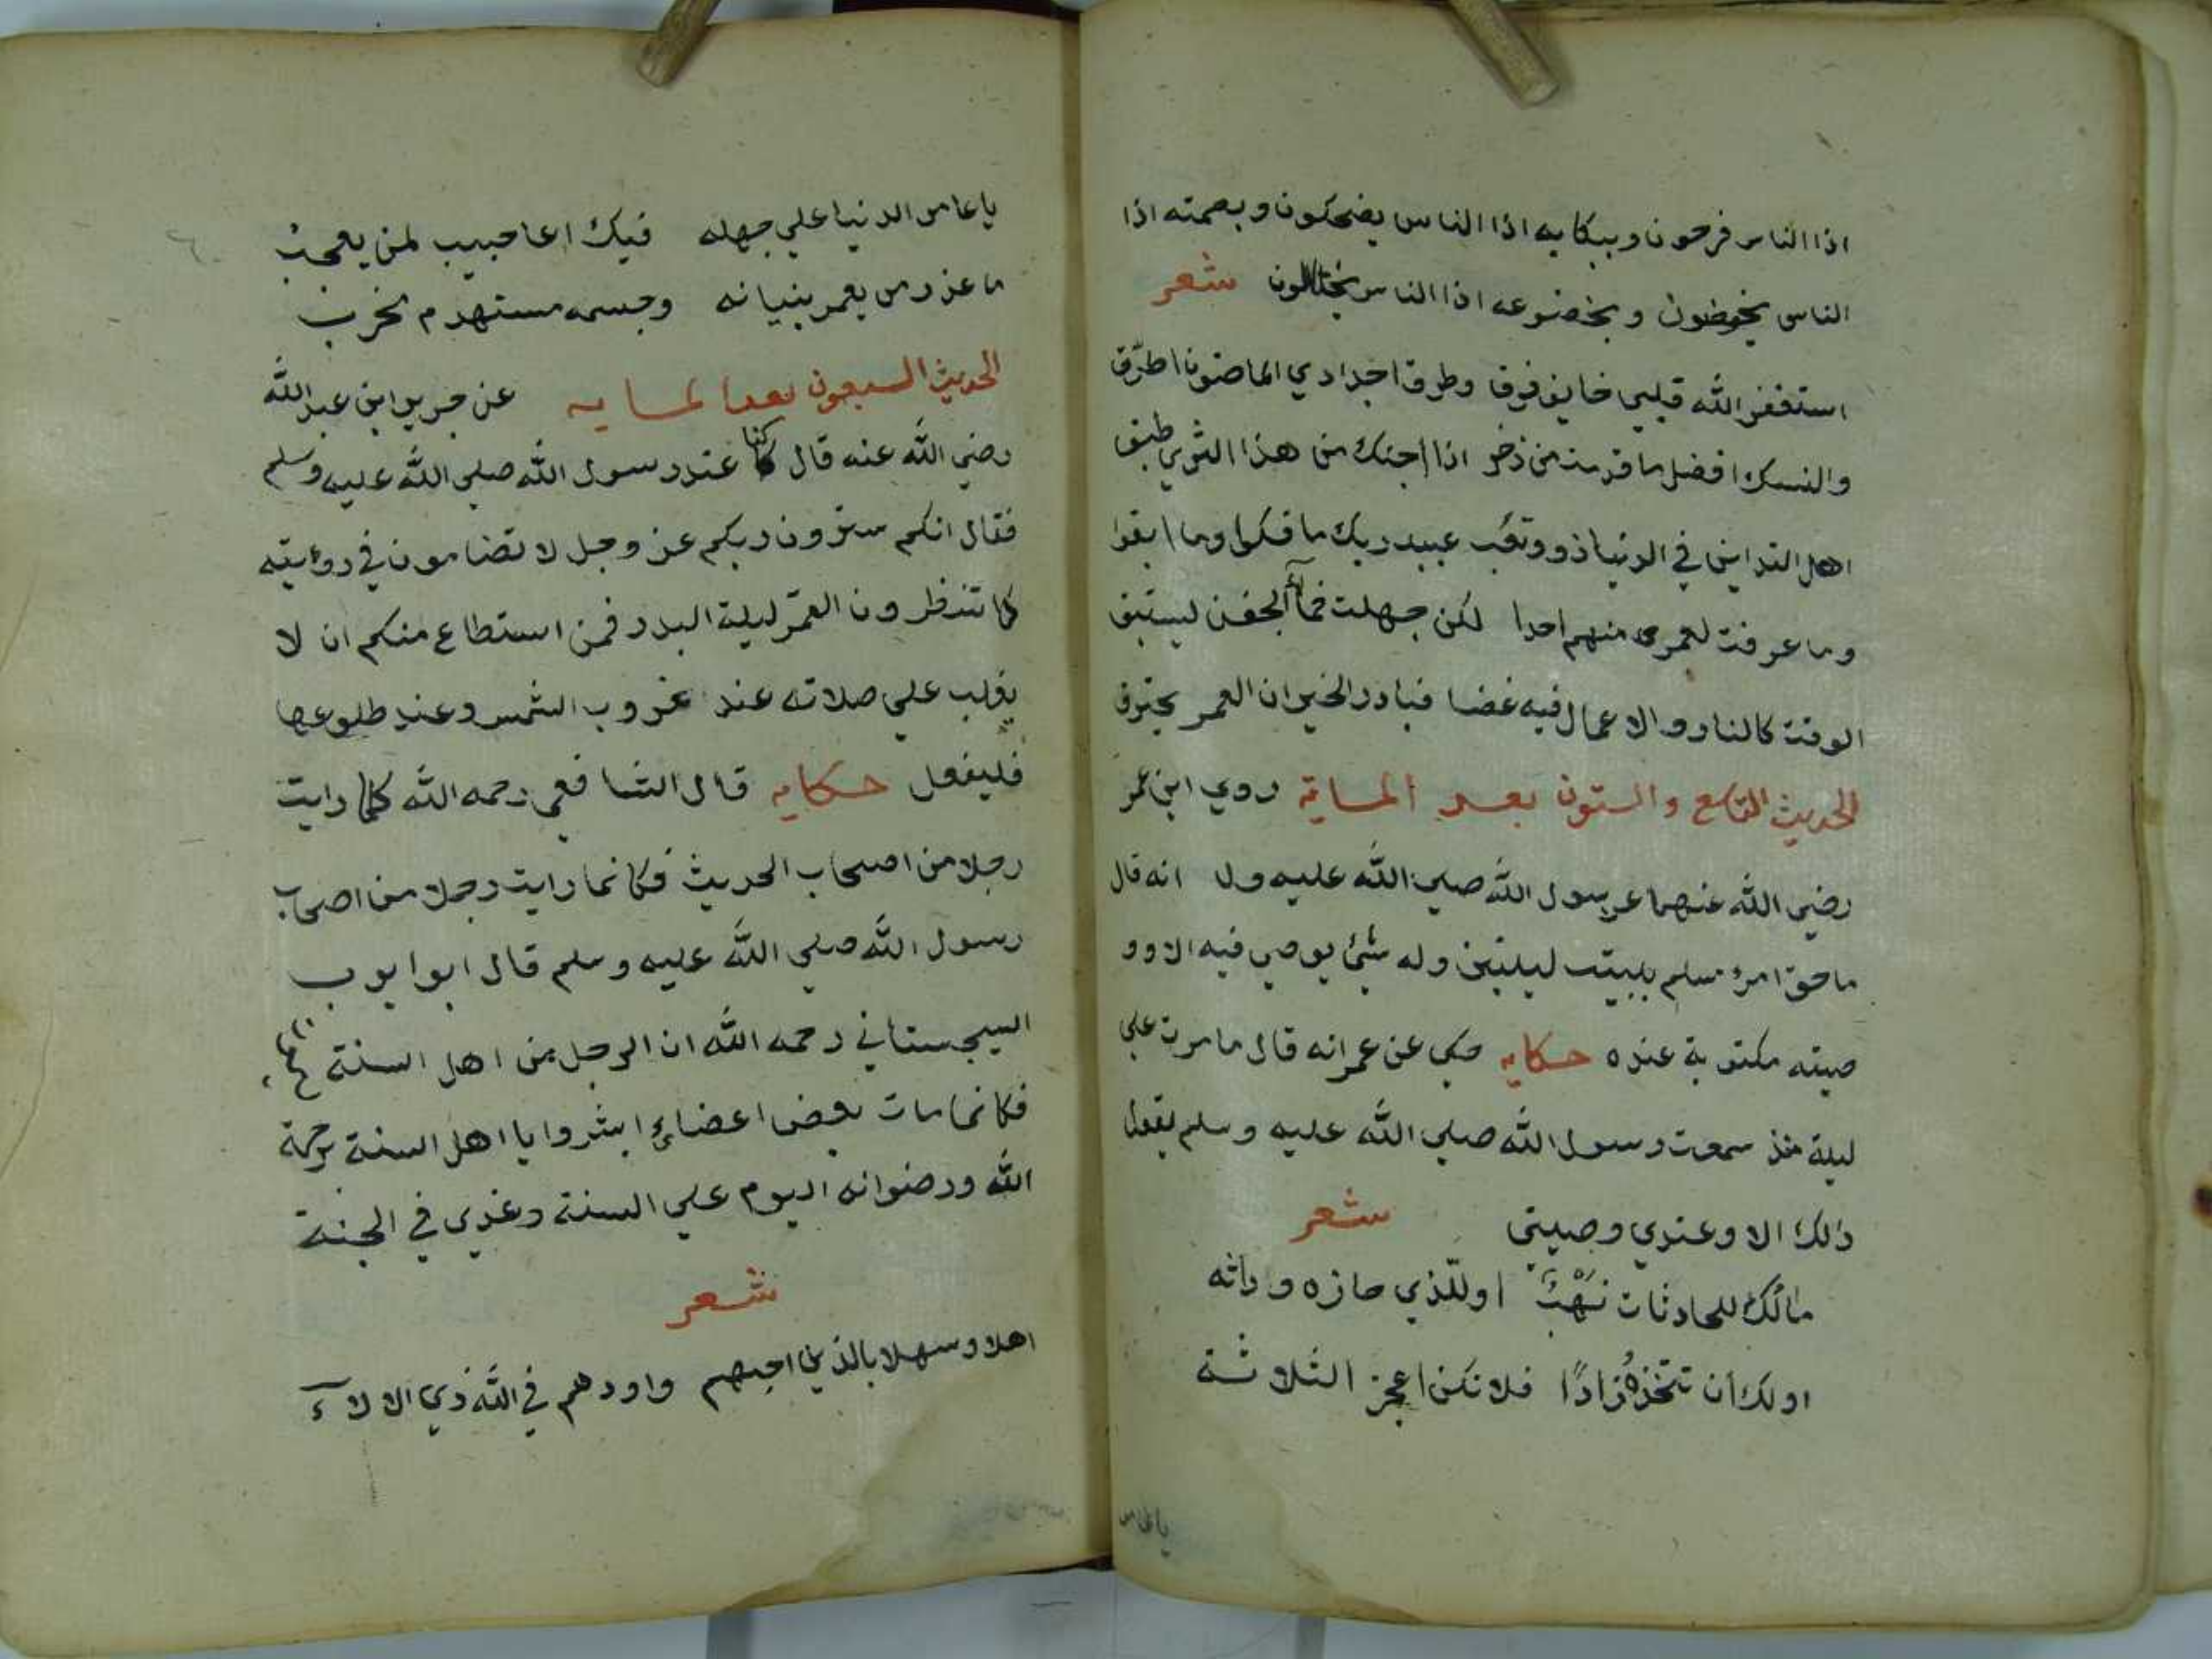 اذا الناس فرحون وببكايه اذا الناس يضحكون وبصمته اذا
الناس يخوضون وبخضوعه اذا الناس يختالون شعر
استغفر الله قلبي خايف فرق وطرق اجدادي الماضون اطرق
والنسك افضل ما قدمت من ذخر اذا اجنك من هذا الثري طبق
اهل التداين في الدنيا ذوو عبيد ربك ما فكوا وما ابقوا
وما عرفت لعمري منهم احدا لكن جهلت الجفن ليستبق
الوقت كالنار والاعمال فيه غضا فبادر الخير ان العمر يحترق
الحديث التاسع والستون بعد الماية روي ابن عمر
رضي الله عنهما عن رسول الله صلي الله عليه انه قال
ما حق امرئ مسلم يبيت ليلتين وله شئ يوصي فيه الا وو
صيته مكتوبة عنده حكايه حكي عن عمر انه قال ما مرت علي
ليلة منذ سمعت رسول الله صلي الله عليه وسلم يقول
ذالك الا وعندي وصيتي شعر
مالك للحادثات نهب او للذي حازه وراثه
او لك أن تتخذه زادًا فلا تكن اعجز الثلاثة
ياعامر
ياعامر الدنيا علي جهله فيك اعاجيب لمن يعجب
ما عذر من يعمر بنيانه وجسمه مستهدم يخرب
الحديث السبعون بعد الماية عن جرير ابن عبد الله
رضي الله عنه قال كنا عند رسول الله صلي الله عليه وسلم
فقال انكم سترون ربكم عز وجل لا تضامون في روئيته
كما تنظرون القمر ليلة البدر فمن استطاع منكم ان لا
يغلب علي صلاته عند غروب الشمس وعند طلوعها
فليفعل حكايه قال الشافعي رحمه الله كلما رايت
رجلا من اصحاب الحديث فكانما رايت رجلا من اصحاب
رسول الله صلي الله عليه وسلم قال ابو ايوب
السيجستاني رحمه الله ان الرجل من اهل السنة
فكانما مات بعض اعضائ ابشروا يا اهل السنة برحمة
الله ورضوانه اليوم علي السنة وغدي في الجنة
شعر
اهلا وسهلا بالذين احبهم واودهم في الله ذي الالاء